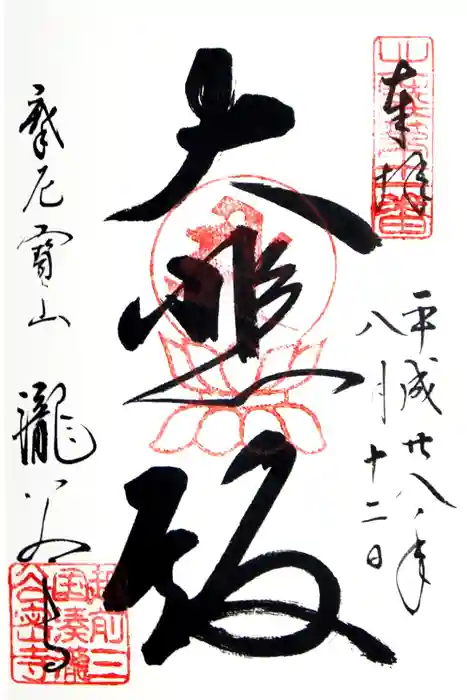 奉拝
平成廿八年
八月十二日
大悲殿
摩尼寶山 瀧谷寺
越前三
国湊瀧
谷密寺